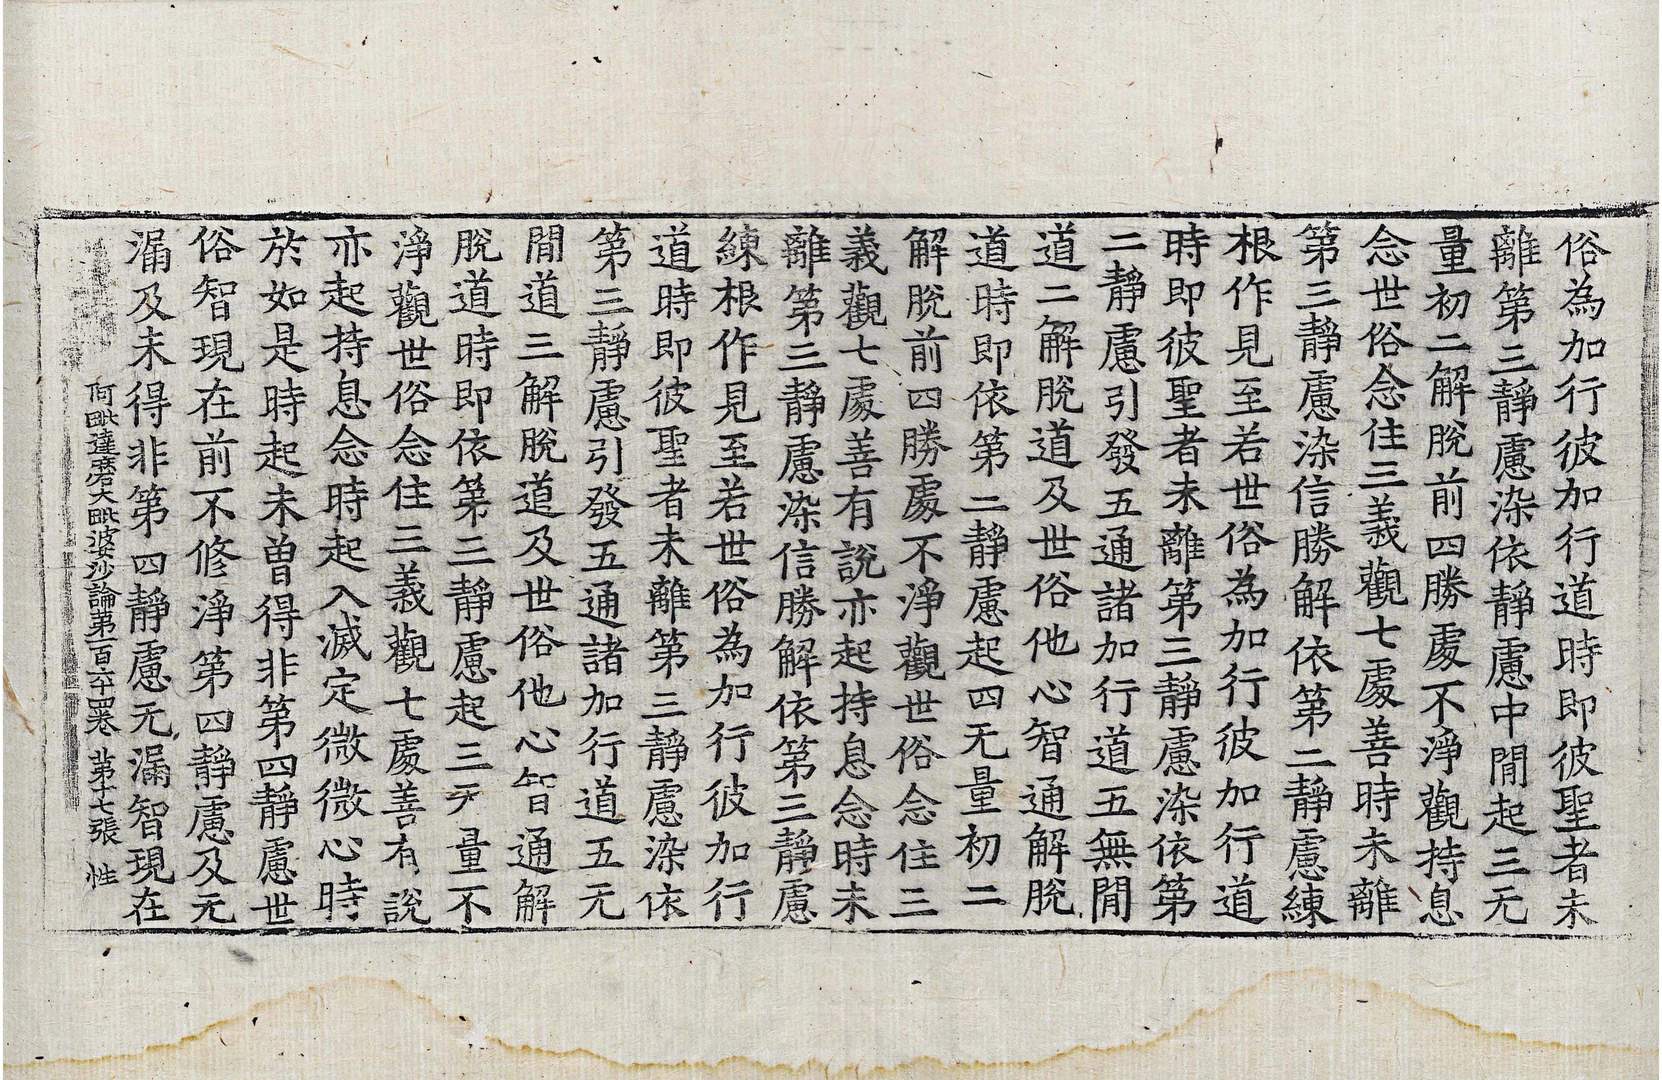 俗為加行彼加行道時即彼聖者未
離第三靜慮染依靜慮中間起三无
量初二解脫前四勝處不淨觀持息
念世俗念住三義觀七處善時未離
第三靜慮染信勝解依第二靜慮練
根作見至若世俗為加行彼加行道
時即彼聖者未離第三靜慮染依第
二靜慮引發五通諸加行道五無間
道二解脫道及世俗他心智通解脫
道時即依第二靜慮起四无量初二
解脫前四勝處不淨觀世俗念住三
義觀七處善有說亦起持息念時未
離第三靜慮染信勝解依第三靜慮
練根作見至若世俗為加行彼加行
道時即彼聖者未離第三靜慮染依
第三靜慮引發五通諸加行道五无
間道三解脫道及世俗他心智通解
脫道時即依第三靜慮起三无量不
淨觀世俗念住三義觀七處善有說
亦起持息念時起入滅定微微心時
於如是時起未曾得非第四靜慮世
俗智現在前不修淨第四靜慮及无
漏及未得非第四靜慮无漏智現在
阿毗達磨大毗婆沙論第一百六十四卷 苐十七張 性